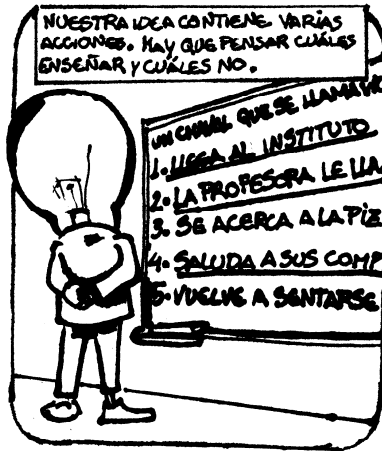 NUESTRA IDEA CONTIENE VARIAS
ACCIONES. HAY QUE PENSAR CUÁLES
ENSEÑAR Y CUÁLES NO.
UN CHAVAL QUE SE LLAMA
1. LLEGA AL INSTITUTO
2. LA PROFESORA LE LLA
3. SE ACERCA A LA PIZ
4. SALUDA A SUS COMP
5. VUELVE A SENTARSE